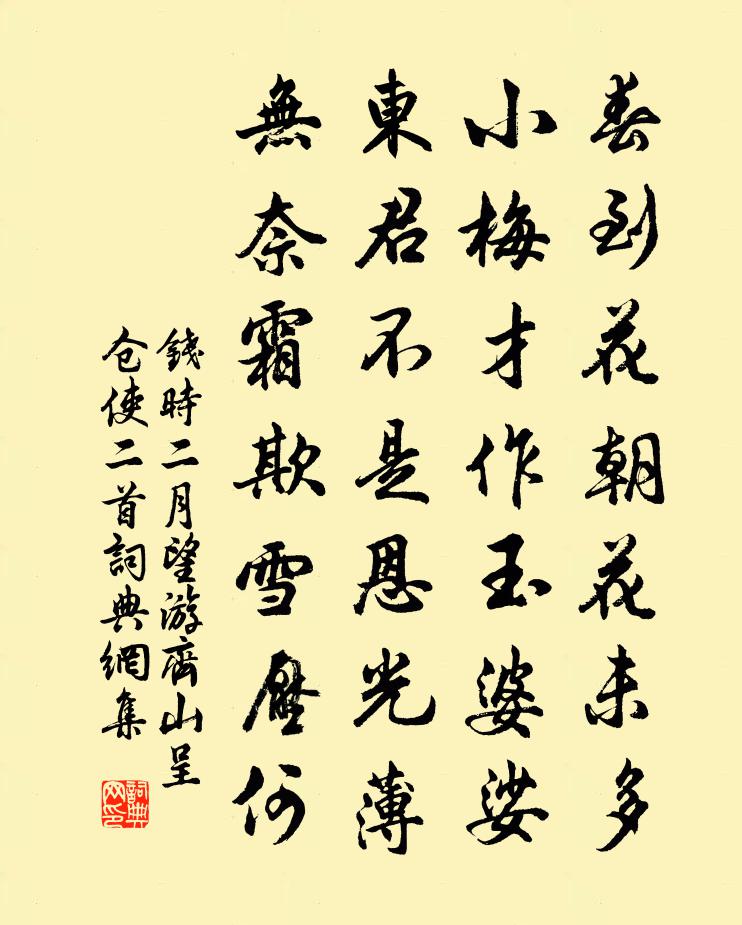 春到花朝花未多
小梅才作玉婆娑
東君不是恩光薄
無奈霜欺雪壓何
錢時二月望游齊山呈
仓使二首詞典網集
詞典网印